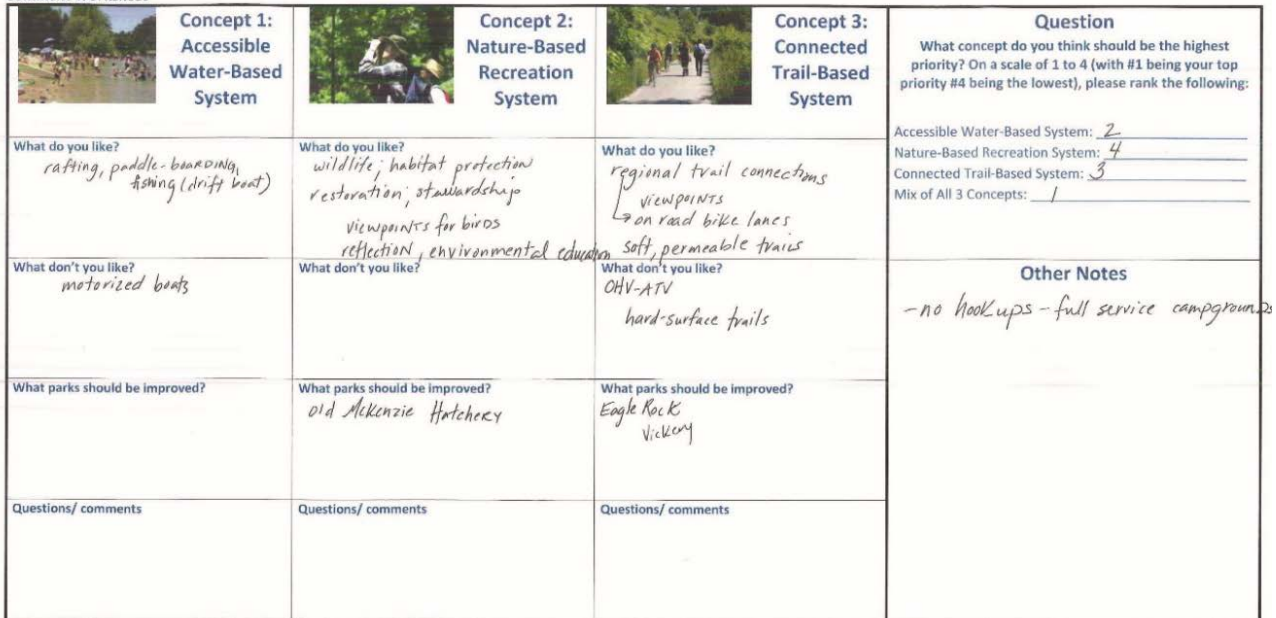 Concept 1:
Accessible
Water-Based
System
What do you like?
rafting, paddle-boarding,
fishing (drift boat)
What don't you like?
motorized boats
What parks should be improved?
Questions/ comments
Concept 2:
Nature-Based
Recreation
System
What do you like?
wildlife; habitat protection
restoration; stewardship
viewpoints for birds
reflection, environmental education
What don't you like?
What parks should be improved?
Old McKenzie Hatchery
Questions/ comments
Concept 3:
Connected
Trail-Based
System
What do you like?
regional trail connections
viewpoints
on road bike lanes
soft, permeable trails
What don't you like?
OHV-ATV
hard-surface trails
What parks should be improved?
Eagle Rock
Vickery
Questions/ comments
Question
What concept do you think should be the highest
priority? On a scale of 1 to 4 (with #1 being your top
priority #4 being the lowest), please rank the following:
Accessible Water-Based System: 2
Nature-Based Recreation System: 4
Connected Trail-Based System: 3
Mix of All 3 Concepts: 1
Other Notes
- no hookups - full service campgrounds